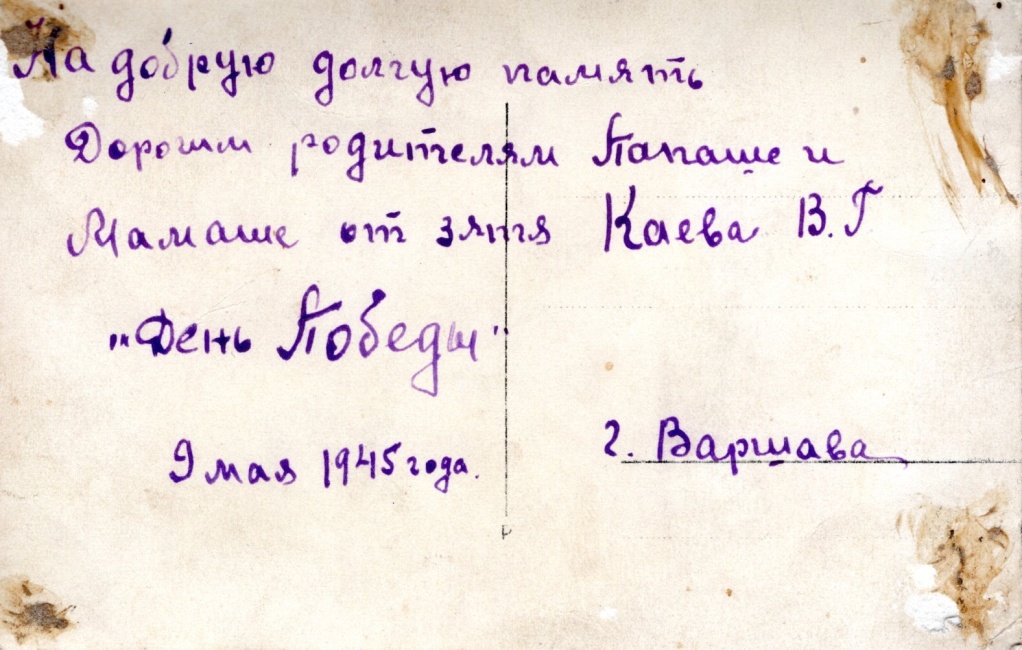 На добрую долгую память
Дорогим родителям Папаше и
Мамаше от зятя Каева В.Г
„День Победы"
9 мая 1945 года.
г. Варшава